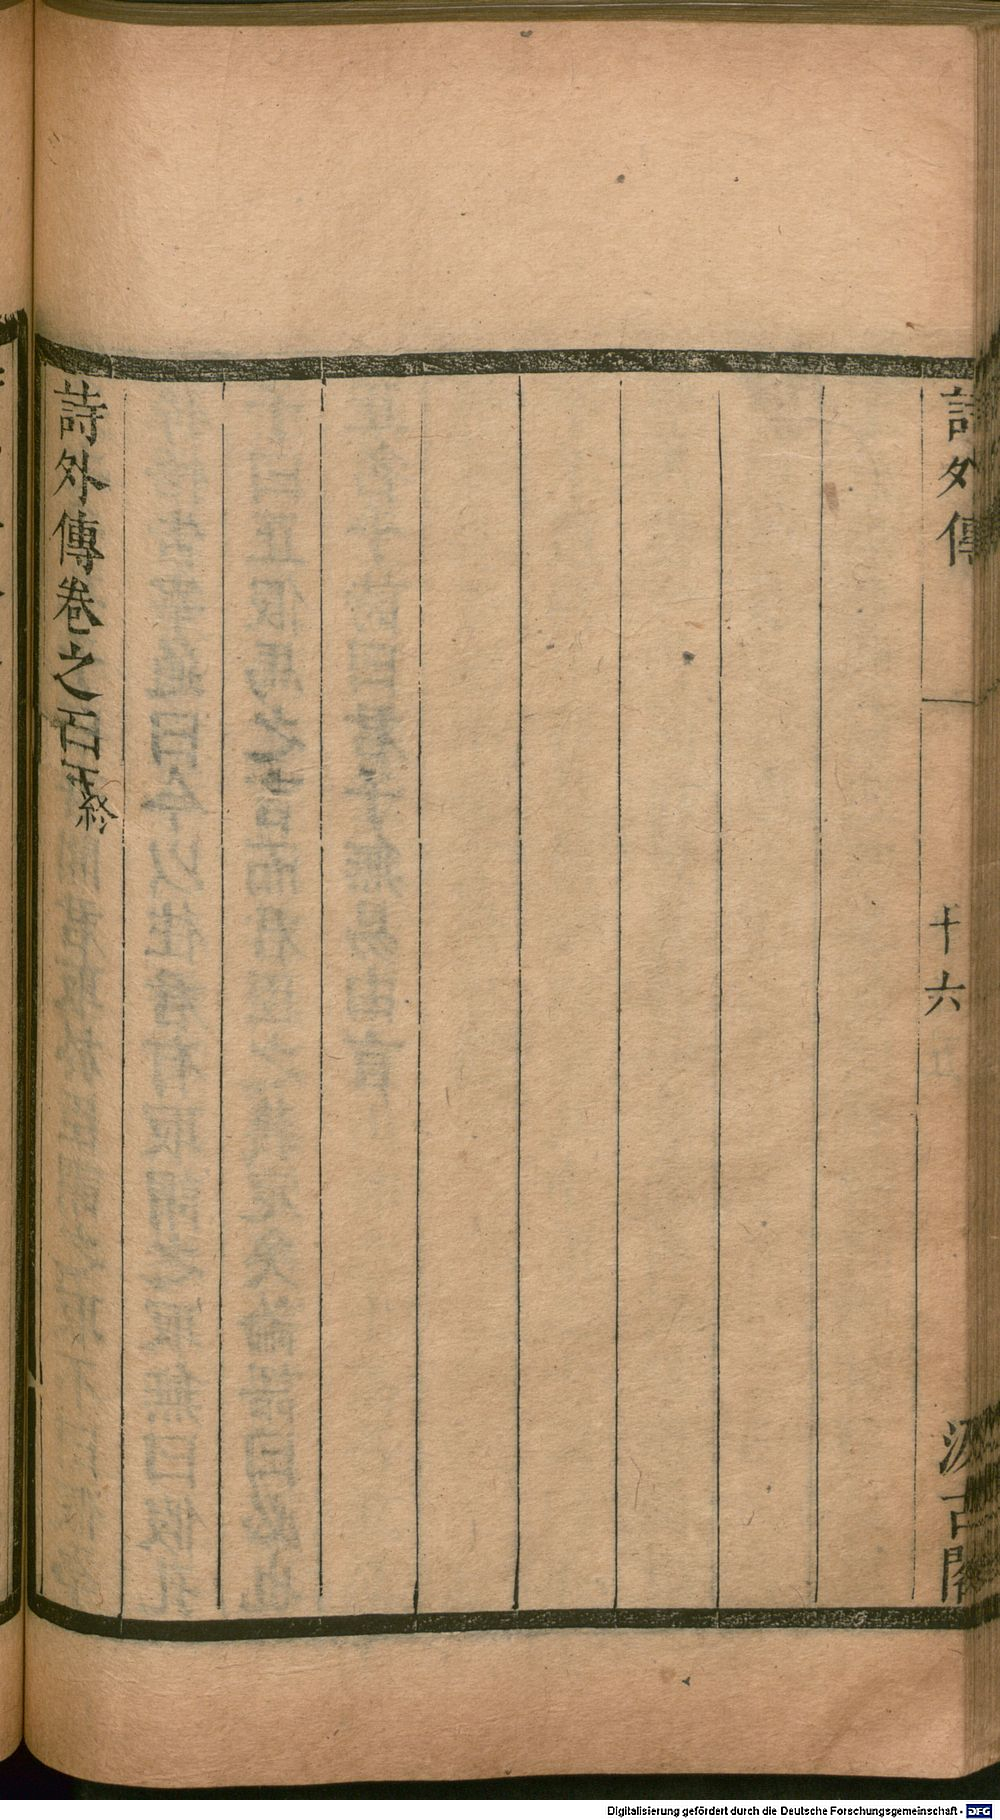 詩外傳
十六
汲古閣
詩外傳卷之百五終
Digitalisierung gefördert durch die Deutsche Forschungsgemeinschaft - DFG